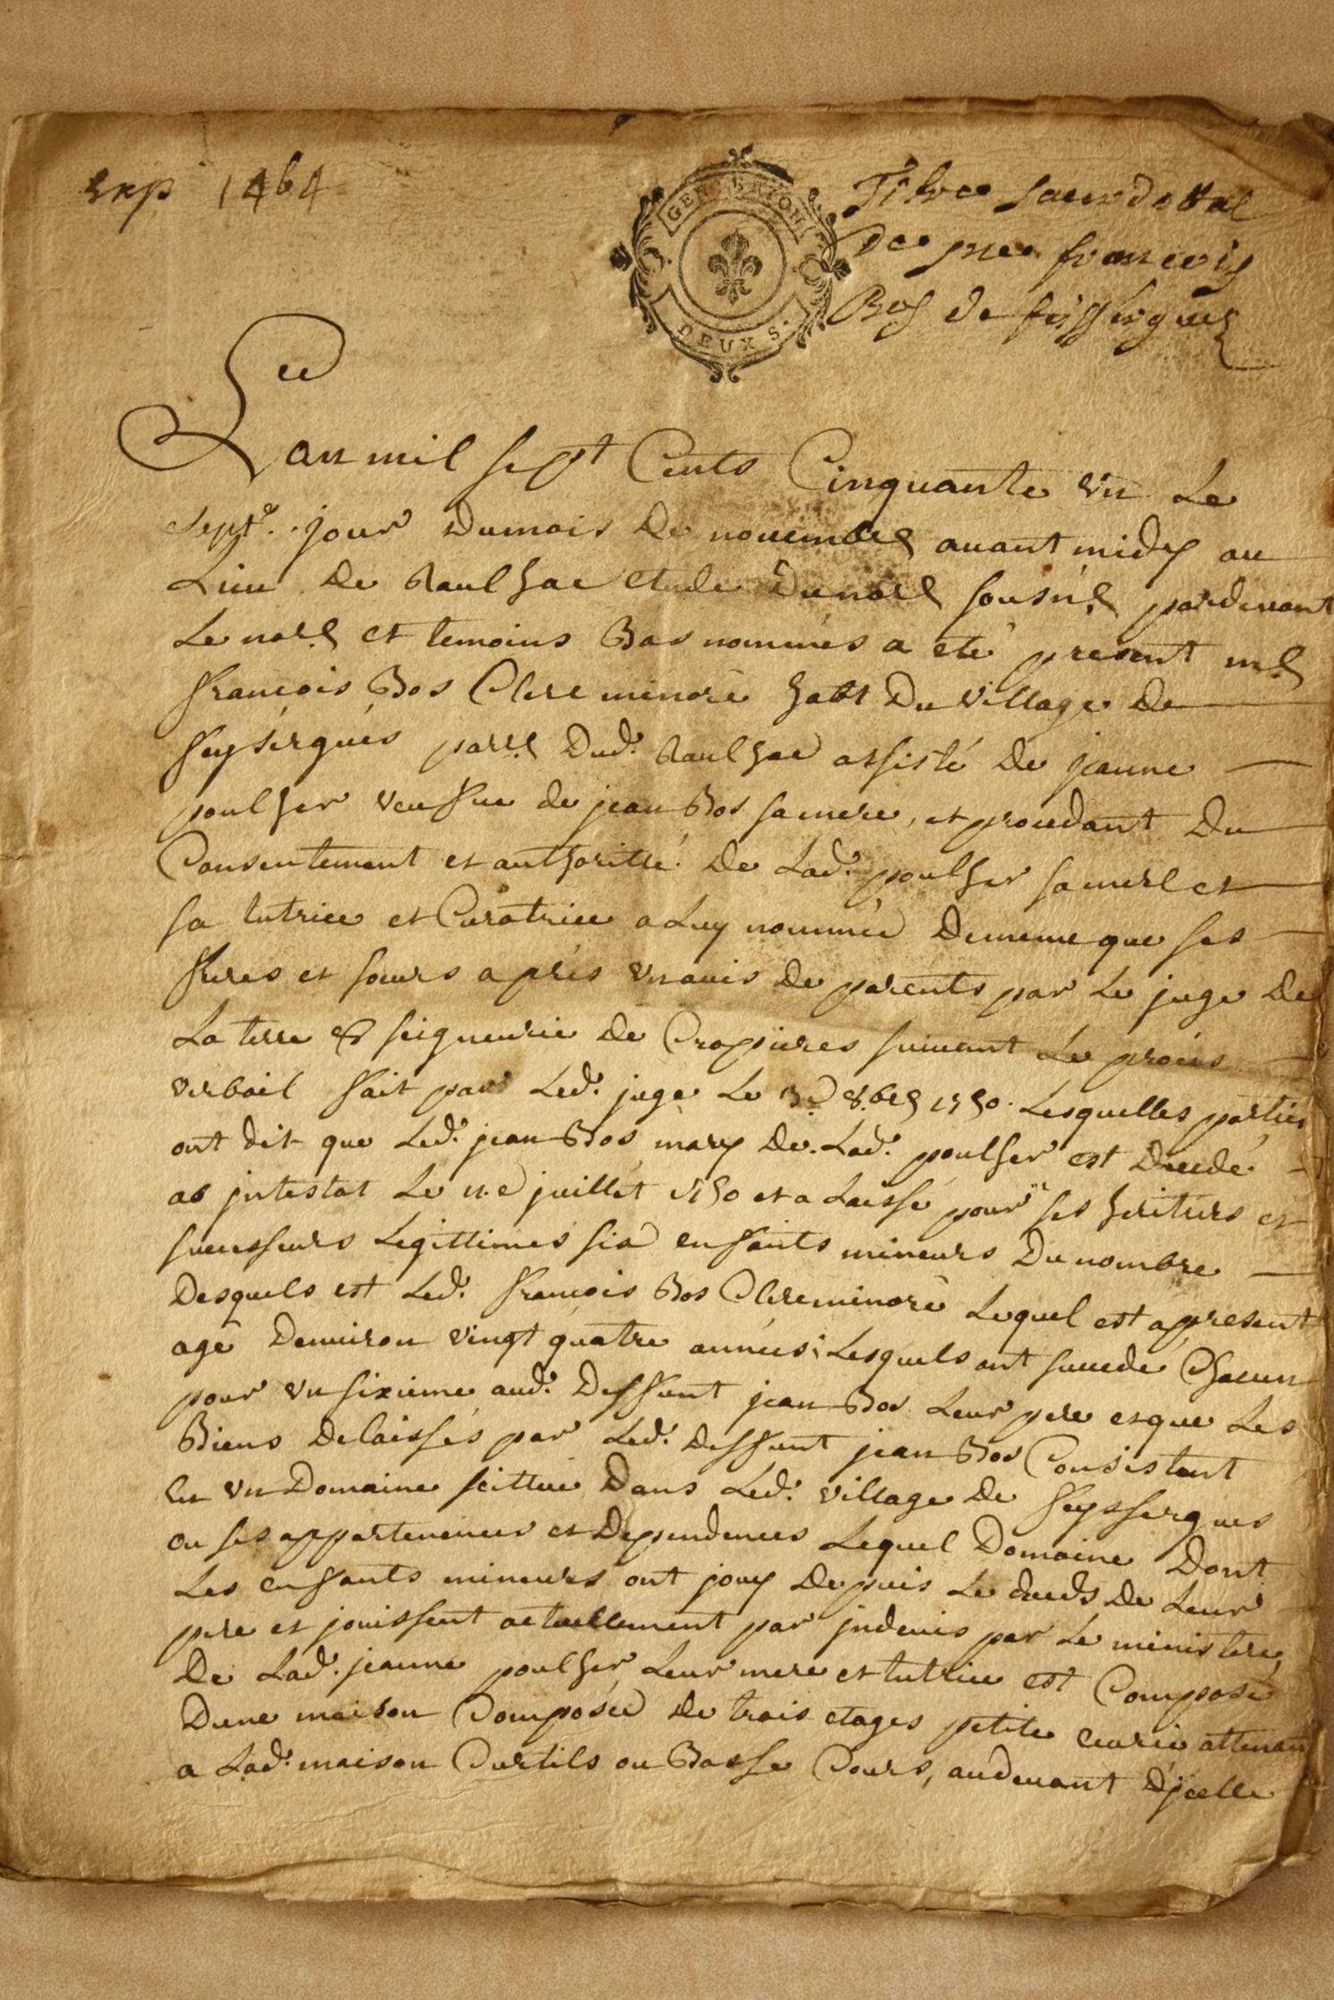 exp 1464
GEN. DE RIOM
DEUX S.
Titre sacerdotal
De me francois
Bos de feissergues
Lan mil sept Cents Cinquante un Le
sept.e jour Dumois De nouembre auant midy au
Lieu De Raulhac etude Du nore sousne pardeuant
Le nore et temoins Bas nommés a eté present me
françois Bos Clerc minoré habt Du village De
feysergues parse Dud. Raulhac assisté De jeanne
poulher veufue de jean Bos sa mere, et procedant Du
Consentement et authoritté De Lad. poulher sa mere et
sa tutrice et Curatrice a Luy nommée Demême que ses
freres et sœurs aprés un auis De parents par Le juge De
La terre & seigneurie de Cropieres suiuant Le procés
verbail fait par Led. juge Le 3.e 8.bre 1750. Lesquelles parties
ont dit que Led. jean Bos mary De Lad. poulher est Decedé
ab jntestat Le 11.e juillet 1750 et a Laissé pour ses heritiers et
successeurs Legittimes six enfants mineurs Du nombre
Desquels est Led. françois Bos Clerc minoré Lequel est apresent
agé Denuiron vingt quatre années; Lesquels ont succedé Chacun
pour un sixieme aud. Deffunt jean Bos Leur pere et que Les
Biens Delaissés par Led. Deffunt jean Bos Consistent
En un Domaine scittué Dans Led. village De feyssergues
ou ses appartenences et Dependences Lequel Domaine Dont
Les enfants mineurs ont jouy Depuis Le decéds De Leur
pere et jouissent actuellement par jndeuis par Le ministere
De Lad. jeanne poulher Leur mere et tutrice est Composé
Dune maison Composée De trois etages petite ecurie attenan
a Lad. maison Curtils ou Basse Cours, audeuant Djcelle